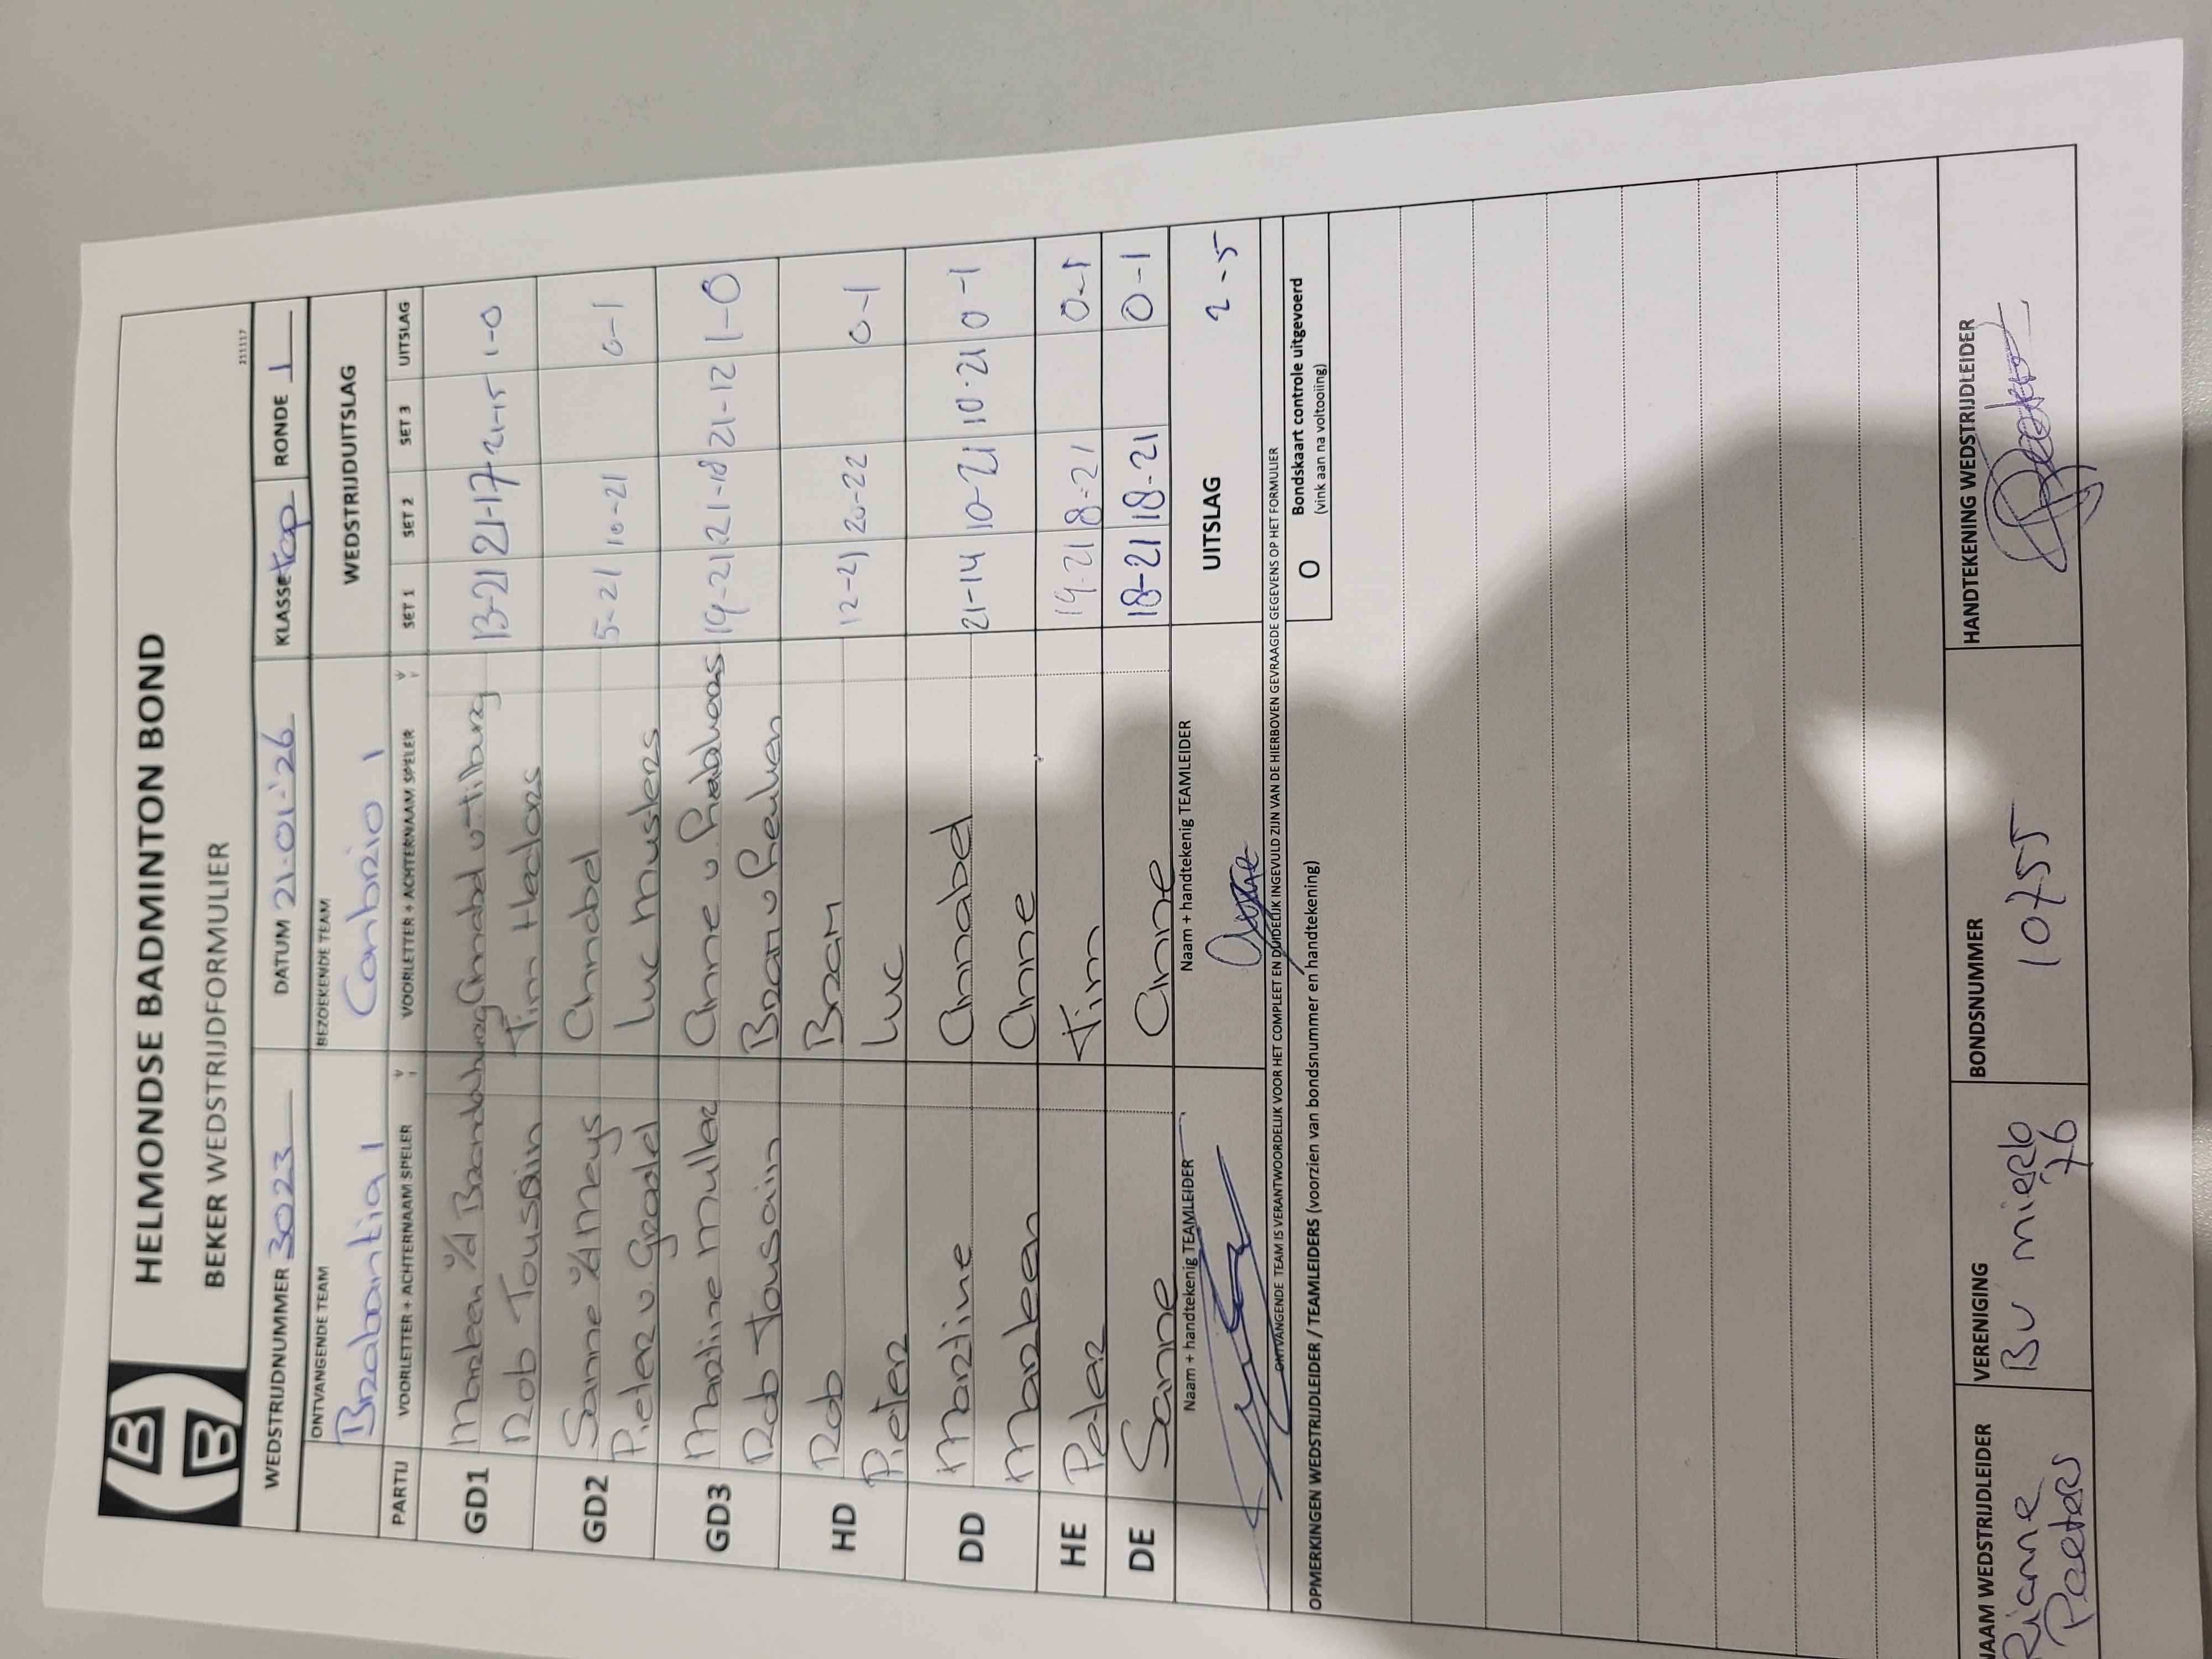 HELMONDSE BADMINTON BOND
BEKER WEDSTRIJDFORMULIER
211117
WEDSTRIJDNUMMER 3023 DATUM 21-01-'26 KLASSE Top RONDE 1
ONTVANGENDE TEAM BEZOEKENDE TEAM WEDSTRIJDUITSLAG
Brabantia 1
PARTIJ VOORLETTER + ACHTERNAAM SPELER VOORLETTER + ACHTERNAAM SPELER SET 1 SET 2 SET 3 UITSLAG
GD1 v/d Annabel v Tilburg 13-21 21-17 21-15 1-0
Rob Tousain Tim
GD2 Sanne v/d Annabel 5-21 10-21 0-1
Pieter v. Luc Musters
GD3 Martine Muller Anne v 19-21 21-18 21-12 1-0
Rob Tousain Bram v
HD Rob Bram 12-21 20-22 0-1
Pieter Luc
DD Martine Annabel 21-14 10-21 10-21 0-1
Marleen Anne
HE Tim 19-21 8-21 0-1
DE Sanne Anne 18-21 18-21 0-1
Naam + handtekenig TEAMLEIDER Naam + handtekenig TEAMLEIDER UITSLAG 2-5
ONTVANGENDE TEAM IS VERANTWOORDELIJK VOOR HET COMPLEET EN DUIDELIJK INGEVULD ZIJN VAN DE HIERBOVEN GEVRAAGDE GEGEVENS OP HET FORMULIER
OPMERKINGEN WEDSTRIJDLEIDER / TEAMLEIDERS (voorzien van bondsnummer en handtekening) O Bondskaart controle uitgevoerd
(vink aan na voltooiing)
NAAM WEDSTRIJDLEIDER VERENIGING BONDSNUMMER HANDTEKENING WEDSTRIJDLEIDER
Rianne BV Mierlo 10755
Peeters '76